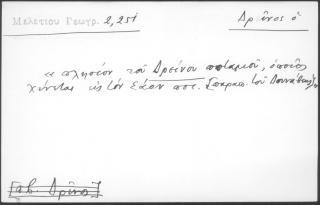 Μελετίου Γεωγρ. 2,251
Δρῖνος ὁ
«πλησίον τοῦ Δρείνου ποταμοῦ, ὁποῖος
χύνεται εἰς τὸν Σάον ποτ. τοῦ Δουνάβεως
[πβ. Δρῖνο]